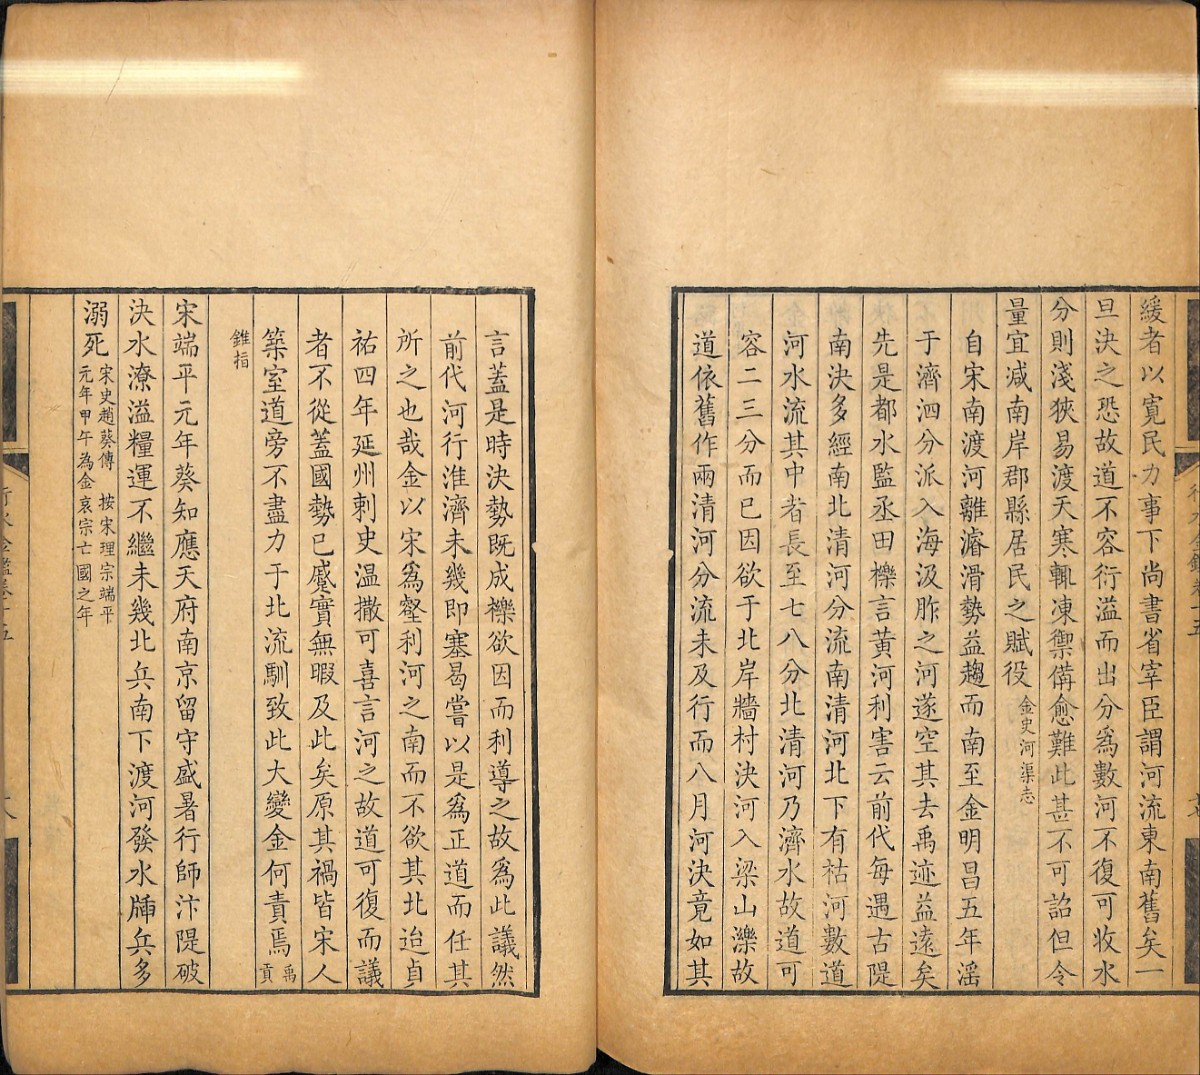 緩者以寬民力事下尚書省宰臣謂河流東南舊矣一
旦決之恐故道不容衍溢而出分爲數河不復可收水
分則淺狹易渡天寒輒凍禦備愈難此甚不可詔但令
量宜減南岸郡縣居民之賦役金史河渠志
自宋南渡河離濬滑勢益趨而南至金明昌五年滛
于濟泗分派入海汲胙之河遂空其去禹迹益遠矣
先是都水監丞田櫟言黃河利害云前代每遇古隄
南決多經南北清河分流南清河北下有枯河數道
河水流其中者長至七八分北清河乃濟水故道可
容二三分而已因欲于北岸牆村決河入梁山濼故
道依舊作兩清河分流未及行而八月河決竟如其
言蓋是時決勢旣成櫟欲因而利導之故爲此議然
前代河行淮濟未幾即塞曷嘗以是爲正道而任其
所之也哉金以宋爲壑利河之南而不欲其北迨貞
祐四年延州刺史温撒可喜言河之故道可復而議
者不從蓋國勢已蹙實無暇及此矣原其禍皆宋人
築室道旁不盡力于北流馴致此大變金何責焉禹貢
錐指
宋端平元年葵知應天府南京留守盛暑行師汴隄破
決水潦溢糧運不繼未幾北兵南下渡河發水牐兵多
溺死宋史趙葵傳 按宋理宗端平
元年甲午為金哀宗亡國之年